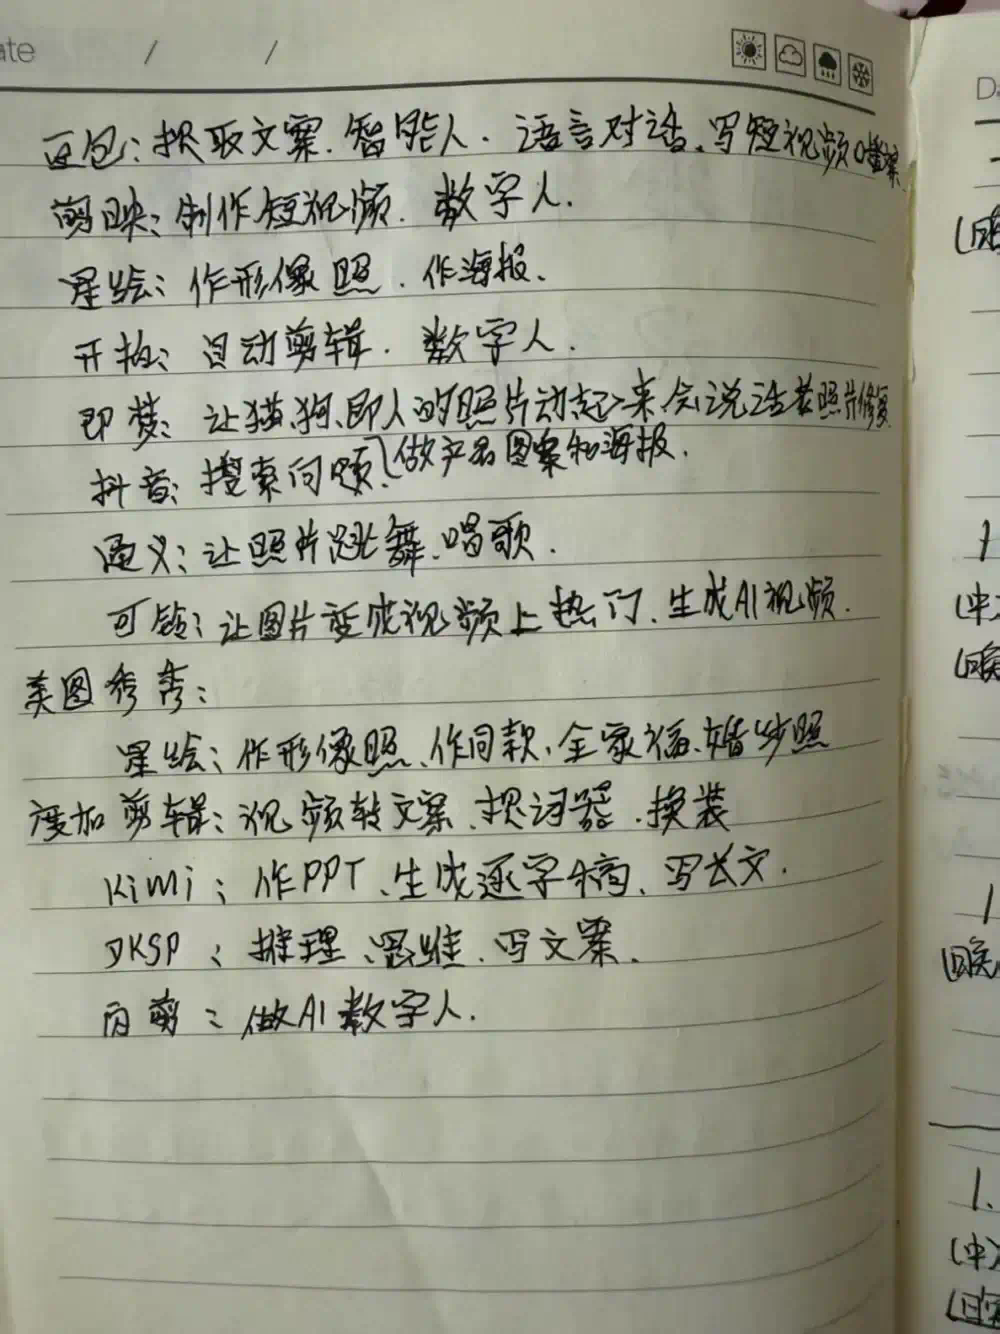 ate / /
豆包：提取文案、智能人、语言对话、写短视频口播案
剪映：制作短视频、数字人.
星绘：作形像照、作海报.
开拍：自动剪辑、数字人.
即梦：让猫、狗、即人的照片动起来、会说话老照片修复
抖音：搜索问题、(做产品图案和海报.
通义：让照片跳舞、唱歌.
可铃：让图片变成视频上热门、生成AI视频.
美图秀秀：
星绘：作形像照、作同款、全家福、婚纱照
度加剪辑：视频转文案、提词器、换装
KiMi：作PPT、生成逐字稿、写长文.
DKSP：推理、思维、写文案.
剪：做AI数字人.
Da
1
(中)
1
1.
(中)